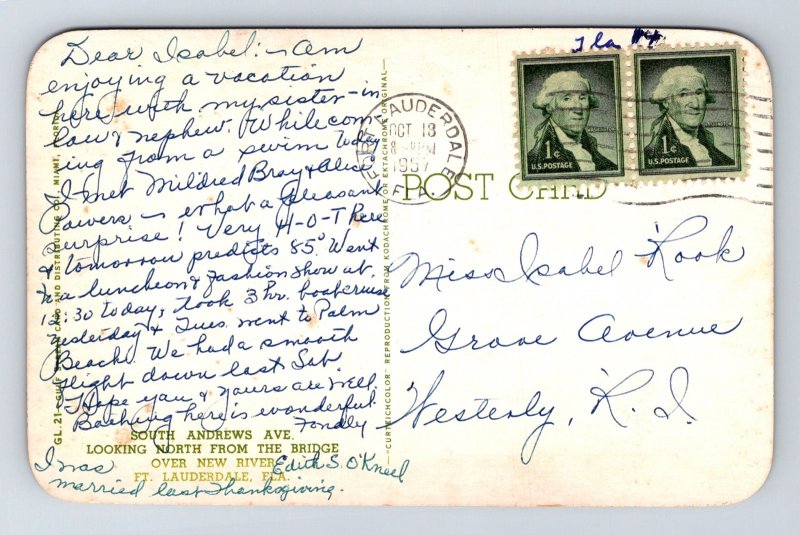 Dear Isabel:- Am
enjoying a vacation
here with my sister-in
law & nephew. While com-
ing from a swim today
I met Mildred Bray & Alice
Powers - what a pleasant
surprise! Very H-O-T here
& tomorrow predicts 85° Went
to a luncheon & fashion show at
12:30 today, took 3 hr. boat cruise
yesterday & Tues. went to Palm
Beach. We had a smooth
flight down last Sat.
Hope you & yours are well.
Bathing here is wonderful.
Fondly
Edith S. O'Kneel
I was
married last Thanksgiving.
SOUTH ANDREWS AVE.
LOOKING NORTH FROM THE BRIDGE
OVER NEW RIVER
FT. LAUDERDALE, FLA.
GL.21
CARD AND DISTRIBUTING CO., MIAMI,
"CURTEICHCOLOR" REPRODUCTION FROM KODACHROME OR EKTACHROME ORIGINAL
FORT LAUDERDALE
OCT 18
PM
1957
FLA.
POST CARD
Fla
1¢
WASHINGTON
U.S. POSTAGE
1¢
WASHINGTON
U.S. POSTAGE
Miss Isabel Rook
Grove Avenue
Westerly, R. I.